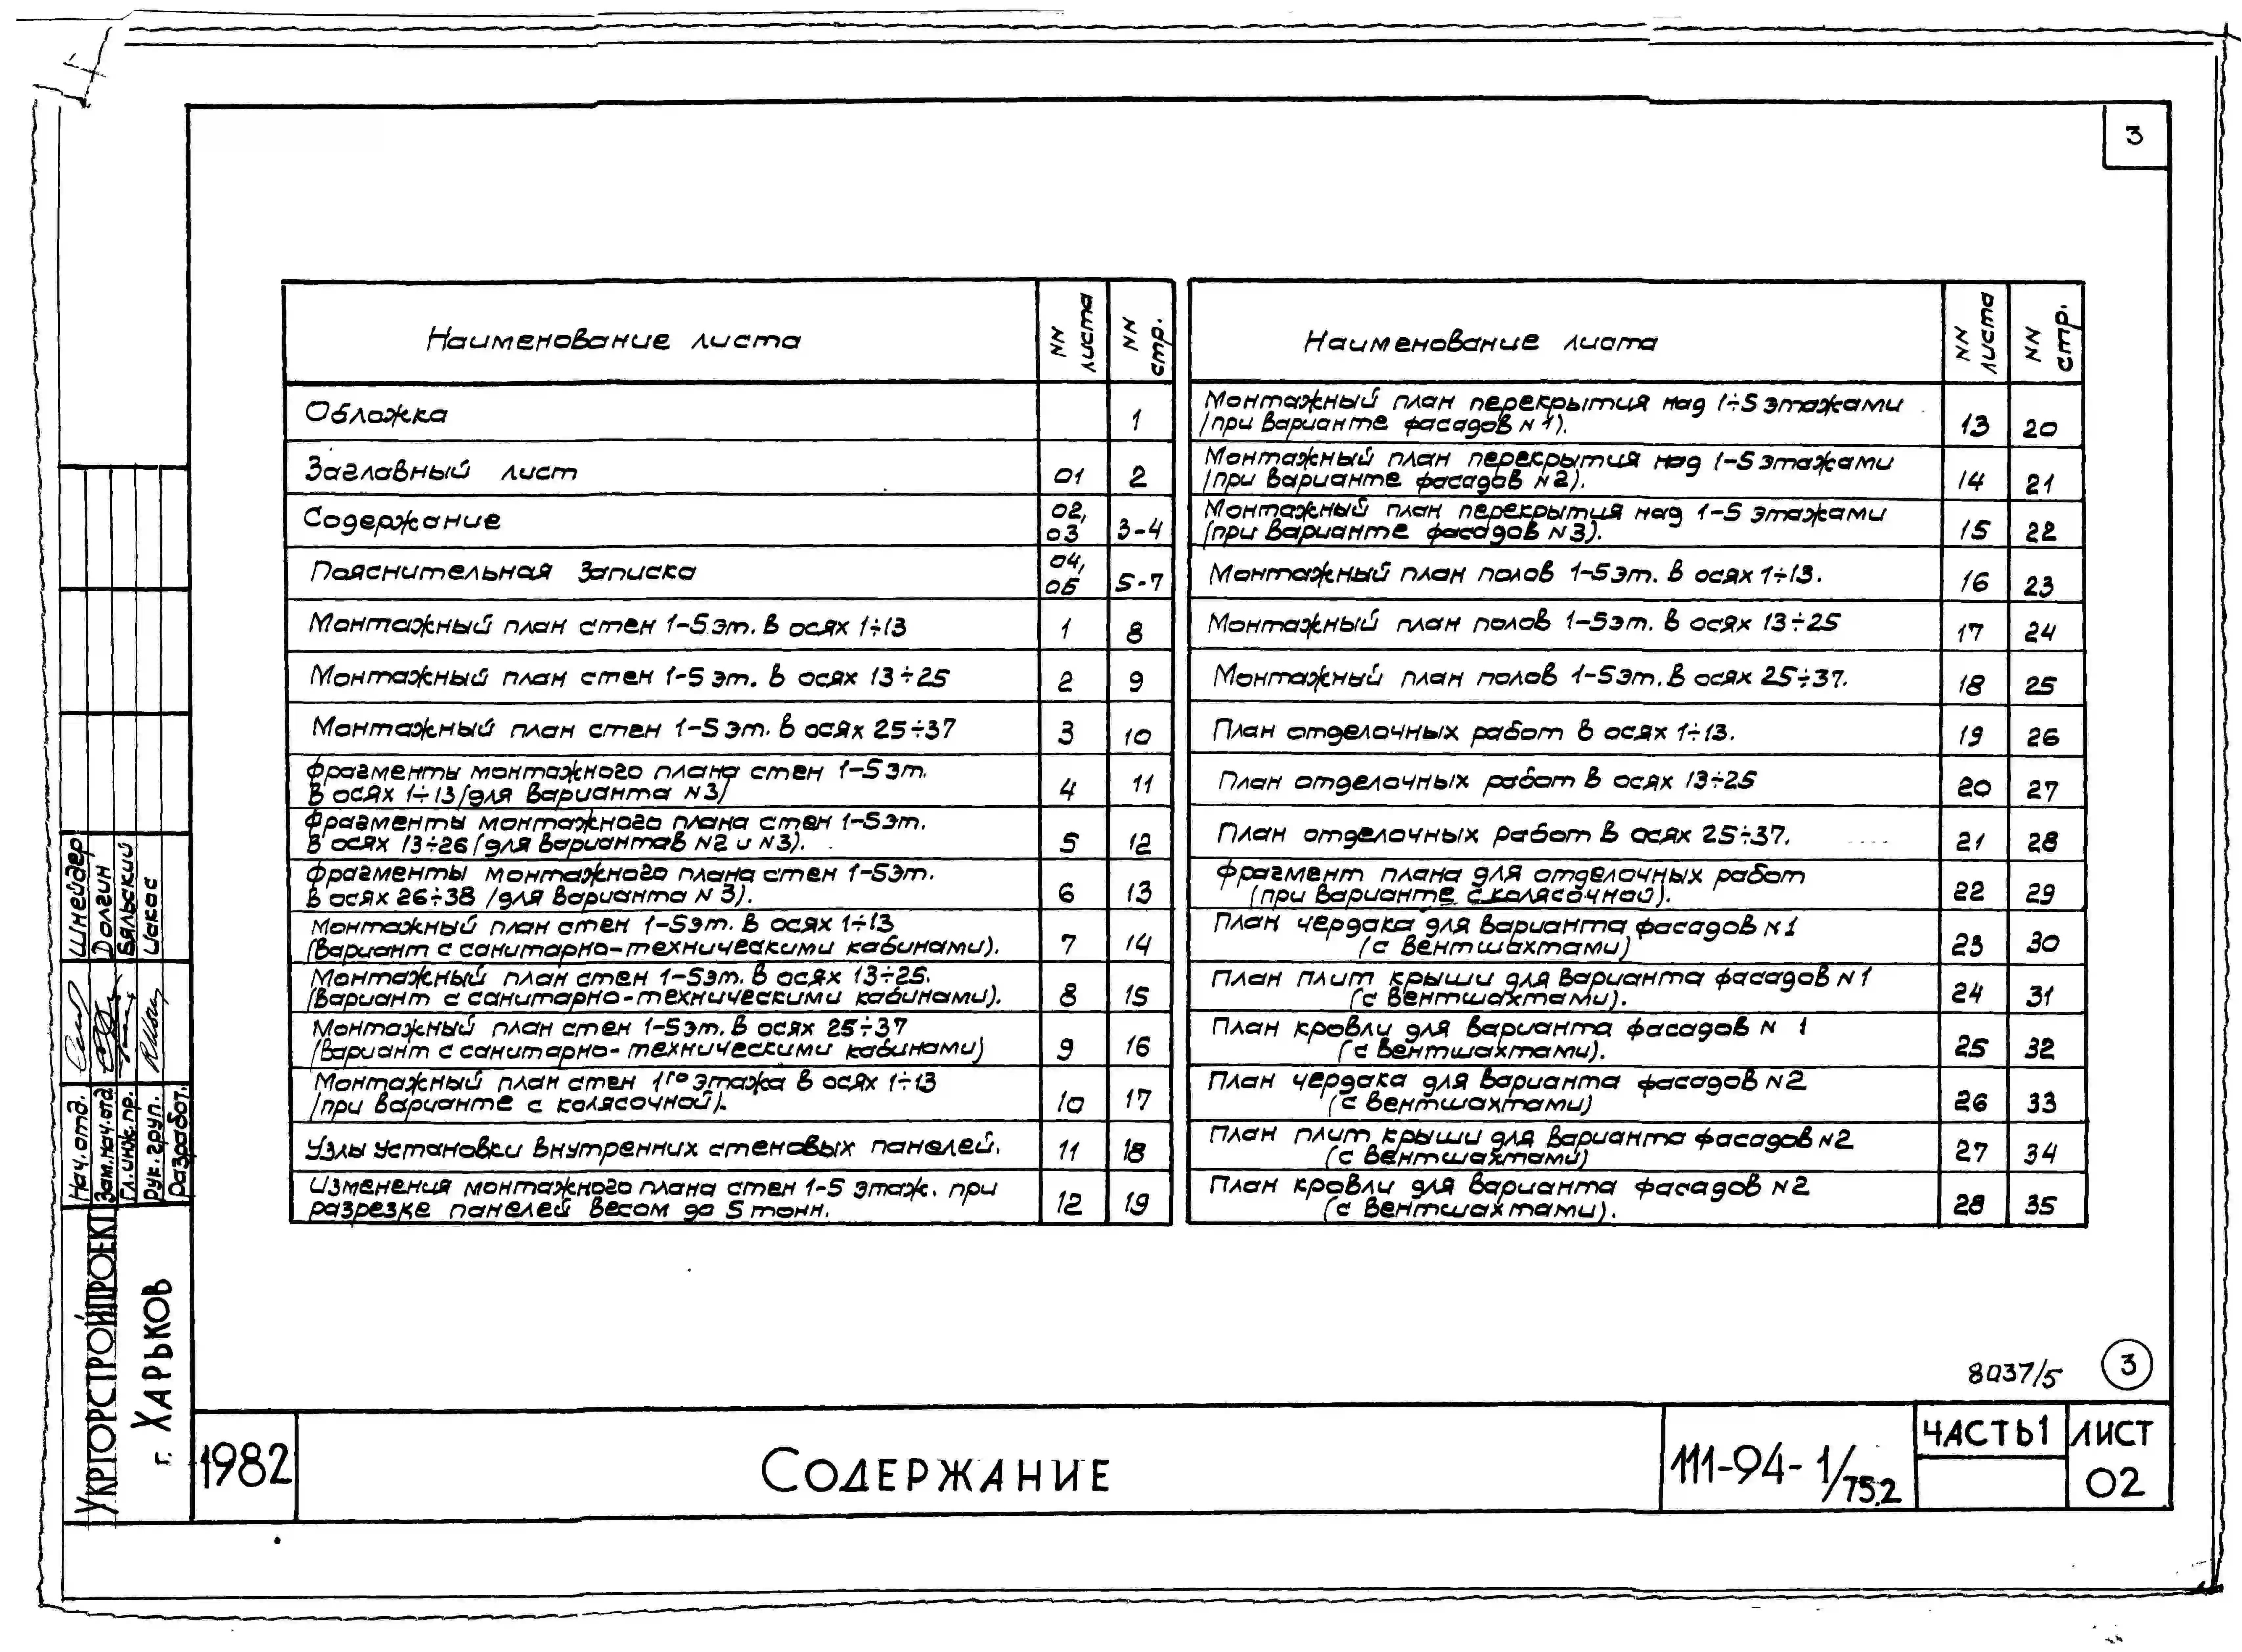 3
Наименование листа
NN листа
NN стр.
Обложка 1
Заглавный лист 01 2
Содержание 02, 03 3-4
Пояснительная записка 04, 05 5-7
Монтажный план стен 1-5 эт. в осях 1÷13 1 8
Монтажный план стен 1-5 эт. в осях 13÷25 2 9
Монтажный план стен 1-5 эт. в осях 25÷37 3 10
Фрагменты монтажного плана стен 1-5 эт.
в осях 1÷13 /для варианта N3/ 4 11
Фрагменты монтажного плана стен 1-5 эт.
в осях 13÷26 (для вариантов N2 и N3). 5 12
Фрагменты монтажного плана стен 1-5 эт.
в осях 26÷38 /для варианта N3). 6 13
Монтажный план стен 1-5 эт. в осях 1÷13
(вариант с санитарно-техническими кабинами). 7 14
Монтажный план стен 1-5 эт. в осях 13÷25.
(вариант с санитарно-техническими кабинами). 8 15
Монтажный план стен 1-5 эт. в осях 25÷37
(вариант с санитарно-техническими кабинами) 9 16
Монтажный план стен 1го этажа в осях 1÷13
/при варианте с колясочной/. 10 17
Узлы установки внутренних стеновых панелей. 11 18
Изменения монтажного плана стен 1-5 этаж. при
разрезке панелей весом до 5 тонн. 12 19
Наименование листа
NN листа
NN стр.
Монтажный план перекрытия над 1÷5 этажами
/при варианте фасадов N1). 13 20
Монтажный план перекрытия над 1-5 этажами
/при варианте фасадов N2). 14 21
Монтажный план перекрытия над 1-5 этажами
(при варианте фасадов N3). 15 22
Монтажный план полов 1-5 эт. в осях 1÷13. 16 23
Монтажный план полов 1-5 эт. в осях 13÷25 17 24
Монтажный план полов 1-5 эт. в осях 25÷37. 18 25
План отделочных работ в осях 1÷13. 19 26
План отделочных работ в осях 13÷25 20 27
План отделочных работ в осях 25÷37. 21 28
Фрагмент плана для отделочных работ
(при варианте с колясочной). 22 29
План чердака для варианта фасадов N1
(с вентшахтами) 23 30
План плит крыши для варианта фасадов N1
(с вентшахтами). 24 31
План кровли для варианта фасадов N 1
(с вентшахтами). 25 32
План чердака для варианта фасадов N2
(с вентшахтами) 26 33
План плит крыши для варианта фасадов N2
(с вентшахтами) 27 34
План кровли для варианта фасадов N2
(с вентшахтами). 28 35
Нач. отд. Шнейдер
Зам. нач. отд. Долгин
Гл. инж. пр. Бяльский
Рук. груп. Цакас
Разработ.
УКРГОРСТРОЙПРОЕКТ
г. ХАРЬКОВ
8037/5 3
1982
СОДЕРЖАНИЕ
111-94-1/75.2
ЧАСТЬ 1
ЛИСТ
02